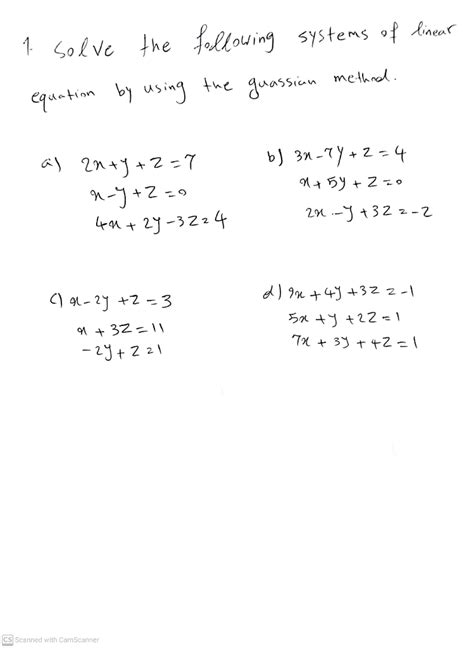 1. Solve the following systems of linear
equation by using the guassian method.
a) 2x+y+z=7
x-y+z=0
4x+2y-3z=4
b) 3x-7y+z=4
x+5y+z=0
2x-y+3z=-2
c) x-2y+z=3
x+3z=11
-2y+z=1
d) 9x+4y+3z=-1
5x+y+2z=1
7x+3y+4z=1
CS Scanned with CamScanner